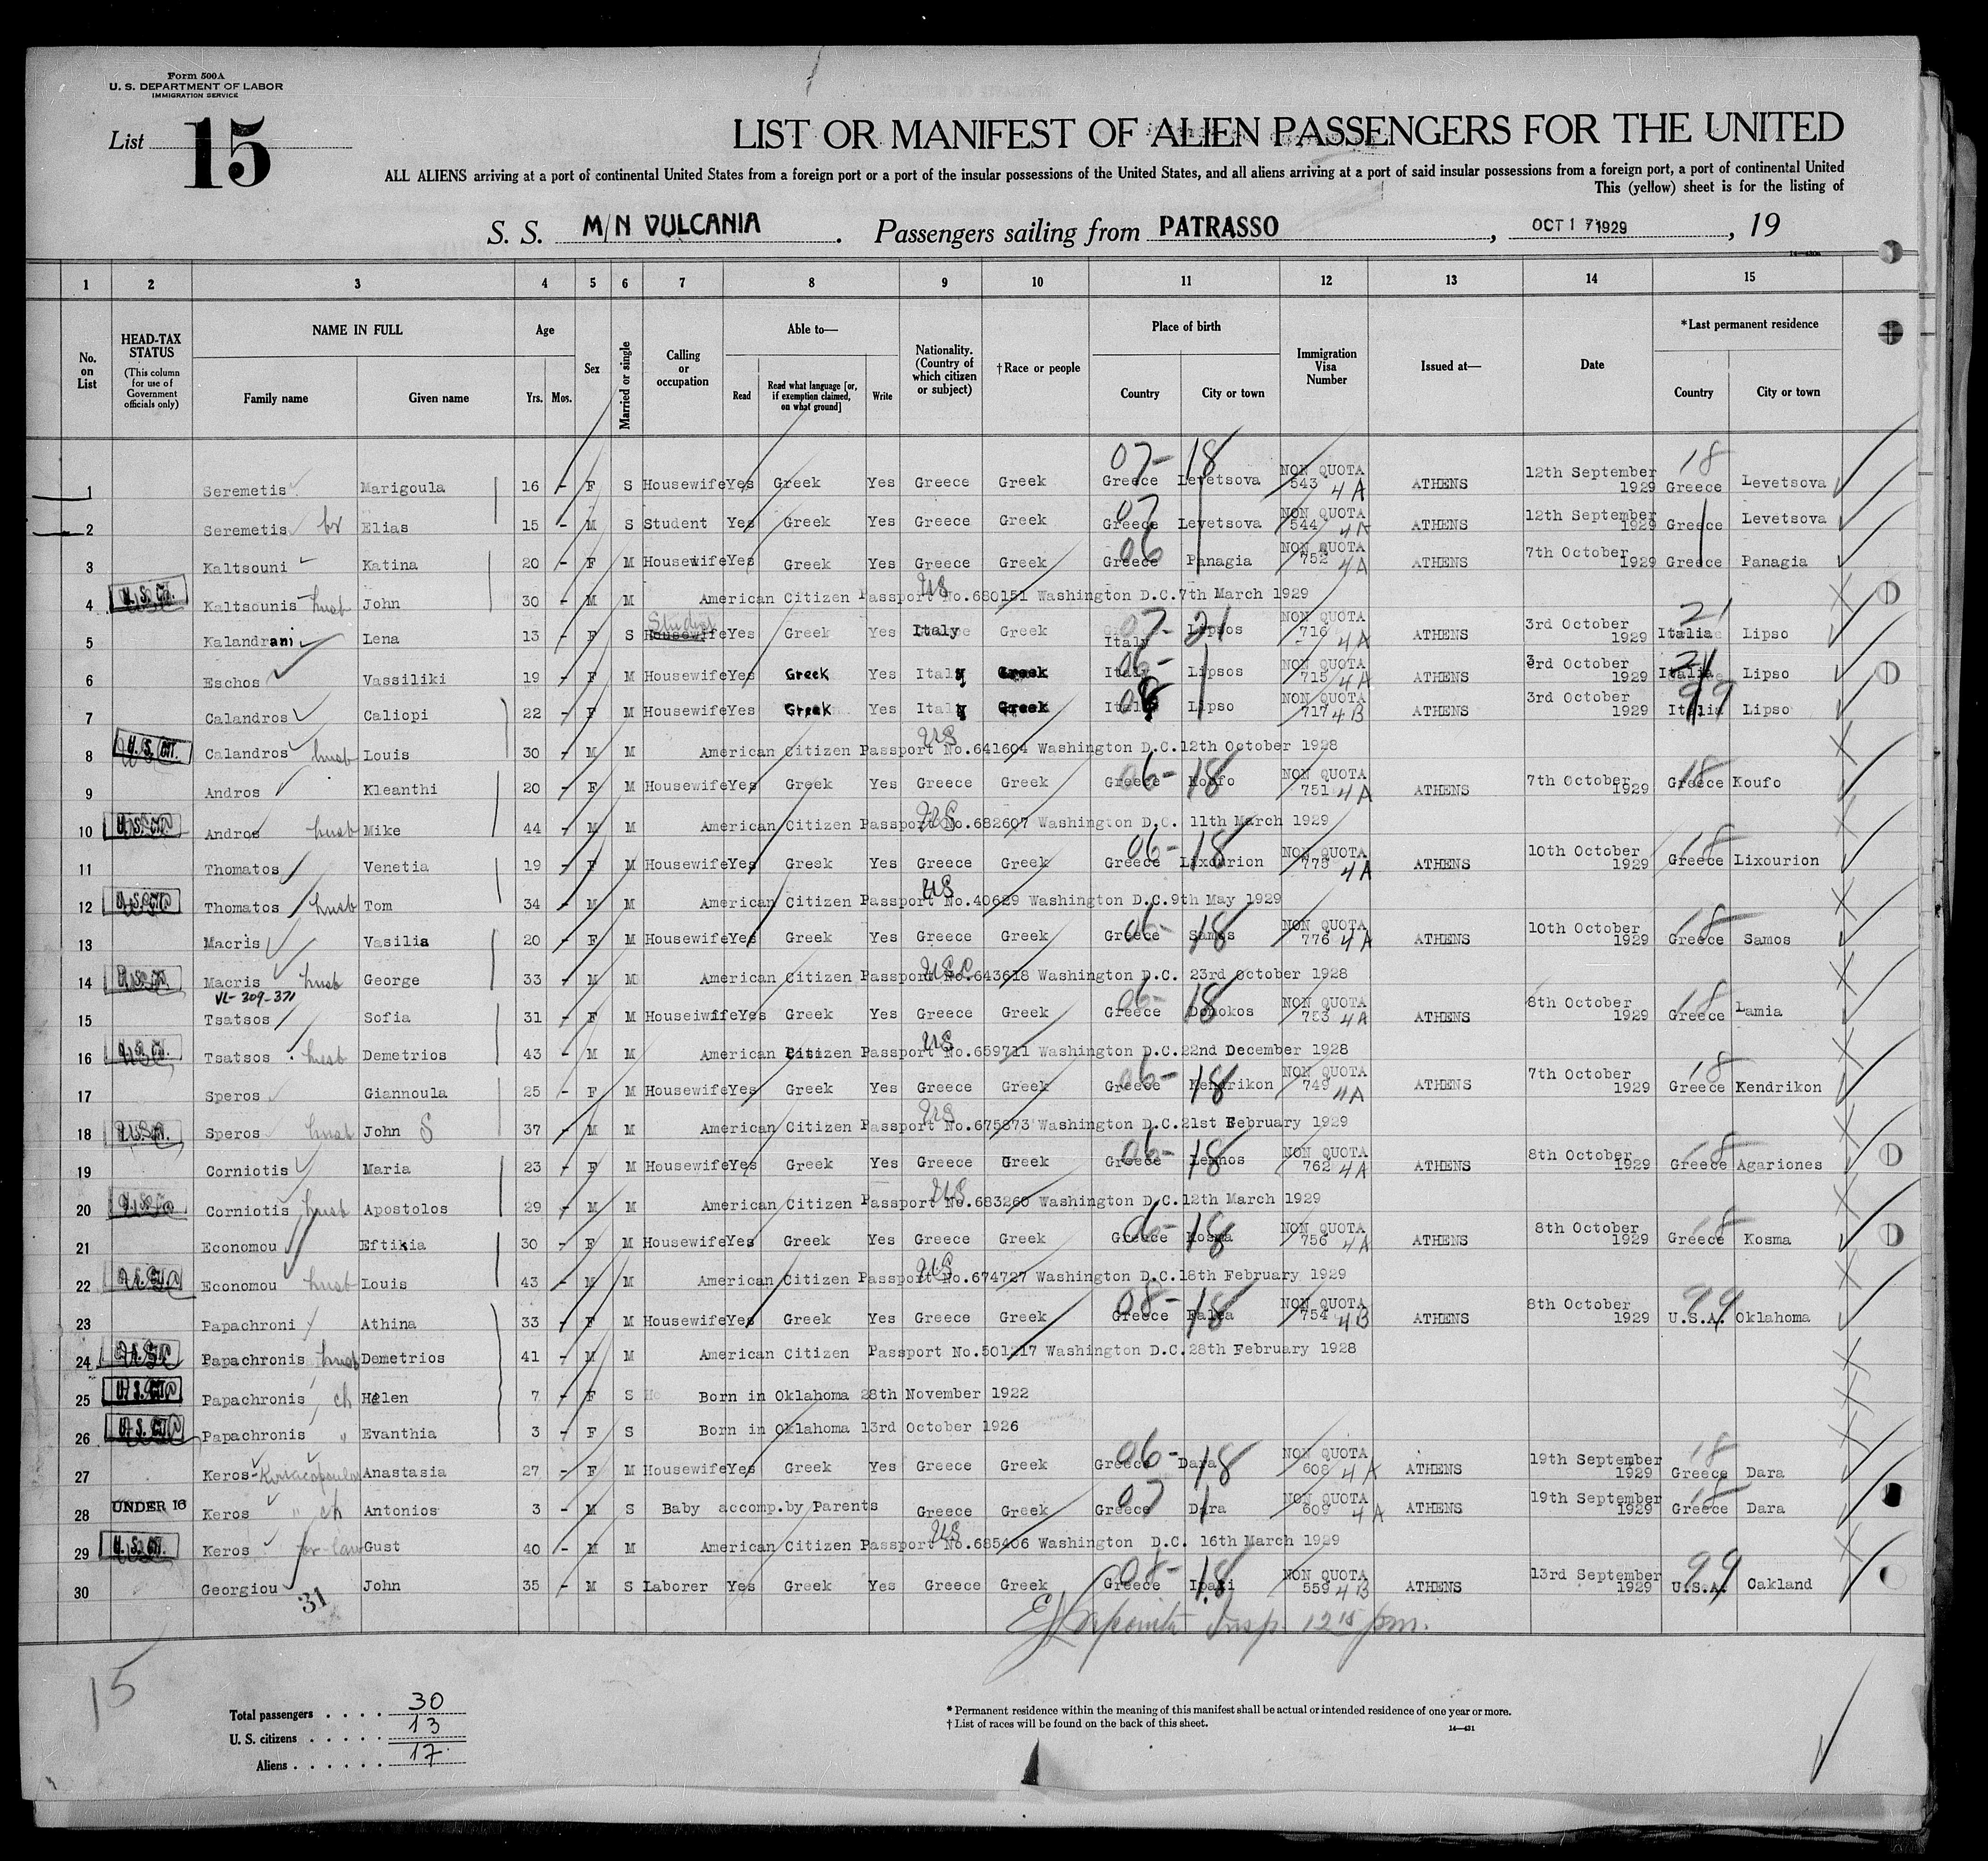 Form 500A
U. S. DEPARTMENT OF LABOR
IMMIGRATION SERVICE
List 15
LIST OR MANIFEST OF ALIEN PASSENGERS FOR THE UNITED
ALL ALIENS arriving at a port of continental United States from a foreign port or a port of the insular possessions of the United States, and all aliens arriving at a port of said insular possessions from a foreign port, a port of continental United
This (yellow) sheet is for the listing of
S. S. M/N VULCANIA. Passengers sailing from PATRASSO, OCT 17 1929, 19
14—430a
1 2 3 4 5 6 7 8 9 10 11 12 13 14 15
No. on List
HEAD-TAX STATUS (This column for use of Government officials only)
NAME IN FULL
Family name Given name
Age
Yrs. Mos.
Sex
Married or single
Calling or occupation
Able to—
Read Read what language [or, if exemption claimed, on what ground] Write
Nationality. (Country of which citizen or subject)
†Race or people
Place of birth
Country City or town
Immigration Visa Number
Issued at—
Date
*Last permanent residence
Country City or town
1 Seremetis Marigoula 16 - F S Housewife Yes Greek Yes Greece Greek 07- 18 Greece Levetsova NON QUOTA 543 4A ATHENS 12th September 1929 18 Greece Levetsova
2 Seremetis br Elias 15 - M S Student Yes Greek Yes Greece Greek 07 Greece Levetsova NON QUOTA 544 4A ATHENS 12th September 1929 Greece Levetsova
3 Kaltsouni Katina 20 - F M Housewife Yes Greek Yes Greece Greek 06 Greece Panagia NON QUOTA 752 4A ATHENS 7th October 1929 Greece Panagia
4 U.S. CIT. Kaltsounis husb John 30 - M M US American Citizen Passport No.680151 Washington D.C.7th March 1929
5 Kalandrani Lena 13 - F S Housewife Student Yes Greek Yes Italy Greek 07- 21 Italy Lipsos NON QUOTA 716 4A ATHENS 3rd October 1929 21 Italia Lipso
6 Eschos Vassiliki 19 - F M Housewife Yes Greek Yes Italy Greek 06- Italy Lipsos NON QUOTA 715 4A ATHENS 3rd October 1929 21 Italia Lipso
7 Calandros Caliopi 22 - F M Housewife Yes Greek Yes Italy Greek 08 Italy Lipso NON QUOTA 717 4B ATHENS 3rd October 1929 99 Italia Lipso
8 U.S. CIT. Calandros husb Louis 30 - M M US American Citizen Passport No.641604 Washington D.C.12th October 1928
9 Andros Kleanthi 20 - F M Housewife Yes Greek Yes Greece Greek 06- 18 Greece Koufo NON QUOTA 751 4A ATHENS 7th October 1929 18 Greece Koufo
10 U.S. CIT. Andros husb Mike 44 - M M US American Citizen Passport No.682607 Washington D.C. 11th March 1929
11 Thomatos Venetia 19 - F M Housewife Yes Greek Yes Greece Greek 06- 18 Greece Lixourion NON QUOTA 773 4A ATHENS 10th October 1929 18 Greece Lixourion
12 U.S. CIT. Thomatos husb Tom 34 - M M US American Citizen Passport No.40629 Washington D.C.9th May 1929
13 Macris Vasilia 20 - F M Housewife Yes Greek Yes Greece Greek 06- 18 Greece Samos NON QUOTA 776 4A ATHENS 10th October 1929 18 Greece Samos
14 U.S. CIT. Macris husb George 33 - M M USC American Citizen Passport No.643618 Washington D.C. 23rd October 1928
VL-309-371
15 Tsatsos Sofia 31 - F M Houseiwife Yes Greek Yes Greece Greek 06- 18 Greece Domokos NON QUOTA 753 4A ATHENS 8th October 1929 18 Greece Lamia
16 U.S. CIT. Tsatsos husb Demetrios 43 - M M US American Citizen Passport No.659711 Washington D.C.22nd December 1928
17 Speros Giannoula 25 - F M Housewife Yes Greek Yes Greece Greek 06- 18 Greece Kendrikon NON QUOTA 749 4A ATHENS 7th October 1929 18 Greece Kendrikon
18 U.S. CIT. Speros husb John S 37 - M M US American Citizen Passport No.675873 Washington D.C.21st February 1929
19 Corniotis Maria 23 - F M Housewife Yes Greek Yes Greece Greek 06- 18 Greece Lemnos NON QUOTA 762 4A ATHENS 8th October 1929 18 Greece Agariones
20 U.S. CIT. Corniotis husb Apostolos 29 - M M US American Citizen Passport No.683260 Washington D.C.12th March 1929
21 Economou Eftikia 30 - F M Housewife Yes Greek Yes Greece Greek 06- 18 Greece Kosma NON QUOTA 756 4A ATHENS 8th October 1929 18 Greece Kosma
22 U.S. CIT. Economou husb Louis 43 - M M US American Citizen Passport No.674727 Washington D.C.18th February 1929
23 Papachroni Athina 33 - F M Housewife Yes Greek Yes Greece Greek 08- 18 Greece NON QUOTA 754 4B ATHENS 8th October 1929 99 U.S.A. Oklahoma
24 U.S. CIT. Papachronis husb Demetrios 41 - M M American Citizen Passport No.501217 Washington D.C.28th February 1928
25 U.S. CIT. Papachronis ch Helen 7 - F S Born in Oklahoma 28th November 1922
26 U.S. CIT. Papachronis " Evanthia 3 - F S Born in Oklahoma 13rd October 1926
27 Keros-Kiriacopoulos Anastasia 27 - F M Housewife Yes Greek Yes Greece Greek 06- 18 Greece Dara NON QUOTA 608 4A ATHENS 19th September 1929 18 Greece Dara
28 UNDER 16 Keros " ch Antonios 3 - M S Baby accomp.by Parents Greece Greek 07 Greece Dara NON QUOTA 609 4A ATHENS 19th September 1929 18 Greece Dara
29 U.S. CIT. Keros Gust 40 - M M US American Citizen Passport No.685406 Washington D.C. 16th March 1929
30 Georgiou John 35 - M S Laborer Yes Greek Yes Greece Greek 08- 18 Greece NON QUOTA 559 4B ATHENS 13rd September 1929 99 U.S.A. Oakland
31
Insp. 12 15 pm.
15
Total passengers . . . . 30
U. S. citizens . . . . . 13
Aliens . . . . . . 17
* Permanent residence within the meaning of this manifest shall be actual or intended residence of one year or more.
† List of races will be found on the back of this sheet.
14—431